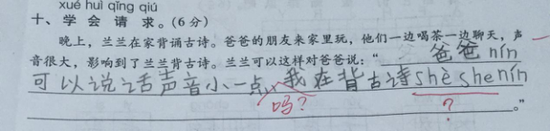 xué huì qǐng qiú
十、学 会 请 求。(6 分)
晚上，兰兰在家背诵古诗。爸爸的朋友来家里玩，他们一边喝茶一边聊天，声
音很大，影响到了兰兰背古诗。兰兰可以这样对爸爸说：“爸爸nín
可以说话声音小一点，我在背古诗shè she nín
吗？
？
。”